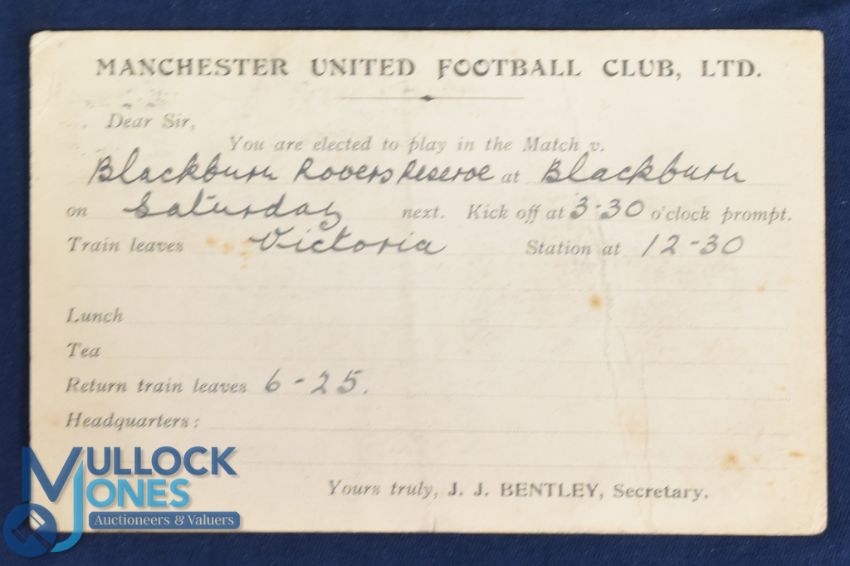 MANCHESTER UNITED FOOTBALL CLUB, LTD.
Dear Sir,
You are elected to play in the Match v.
Blackburn Rovers Reserve at Blackburn
on Saturday next. Kick off at 3-30 o'clock prompt.
Train leaves Victoria Station at 12-30
Lunch
Tea
Return train leaves 6-25.
Headquarters:
Yours truly, J. J. BENTLEY, Secretary.
MULLOCK
JONES
Auctioneers & Valuers